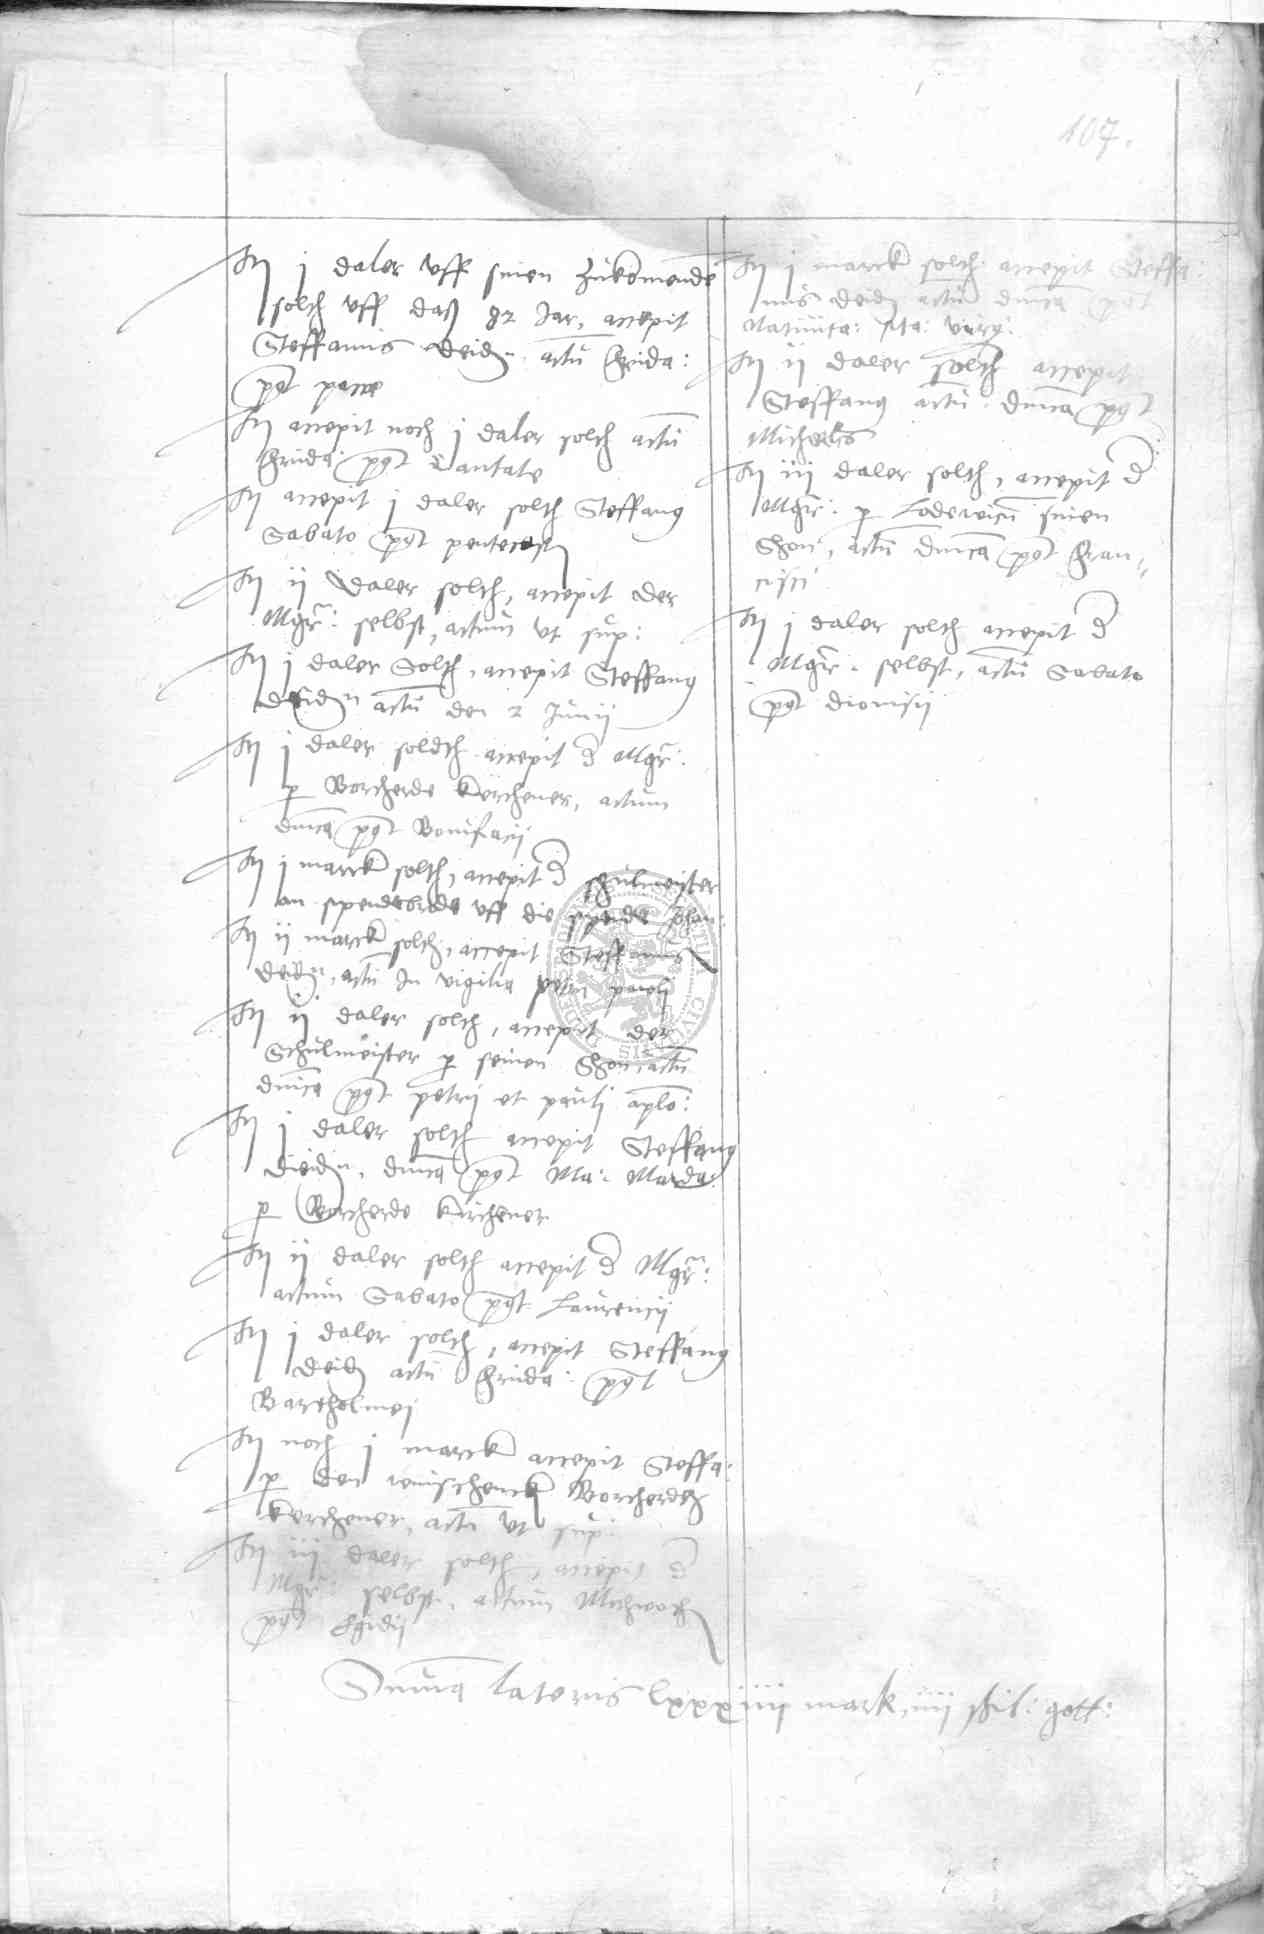 107.
It j daler vff sinen zukomende
solth vff daß 82 Jar, accepit
Steffanus Deidn actū frida:
post pasce
It accepit noch j daler solth actū
frida post Cantate
It accepit j daler solth Steffanus
Sabato post pentecost
It ij daler solth, accepit der
Mgr: selbst, actum vt sup:
It j daler Solth, accepit Steffanus
Deidn actū den 2 Junij
It j daler soldth accepit d Mgr:
p Borcherde Kerchener, actum
dnica post Bonifacij
It j marck solth, accepit d schulmeister
an spendebrode vff die spende Johan:
It ij marck solth, accepit Steffanus
Deidn, actū In vigilia petri pauli
It ij daler solth, accepit der
Schulmeister p seinen Shon actū
dnica post petrij et paulj aplo:
It j daler solth accepit Steffanus
Deidn, dnica post Ma: Magda:
p Borcherde Kirchener
It ij daler solth accepit d Mgr:
actum Sabato post Laurencij
It j daler solth, accepit Steffanus
Deidn actū frida: post
Bartholmej
It noch j marck accepit Steffa:
p den winschenck Borcherdt
Kerchener, actū vt sup:
It iij daler solth, accepit d
Mgr: selbst, actum Michwoch
post Egidij
It j marck solth accepit Steffa:
nus Deidn actū dnica post
Natiuita: Ma: virg:
It ij daler solth accepit
Steffanus actū dnica post
Michaelis
It iij daler solth, accepit d
Mgr: p Lodewicū sinen
Shon, actū dnica post Fran-
cisci
It j daler solth accepit d
Mgr: selbst, actū Sabato
post dionisij
Summa lateris lxxxiiij mark, iiij shil: gott: